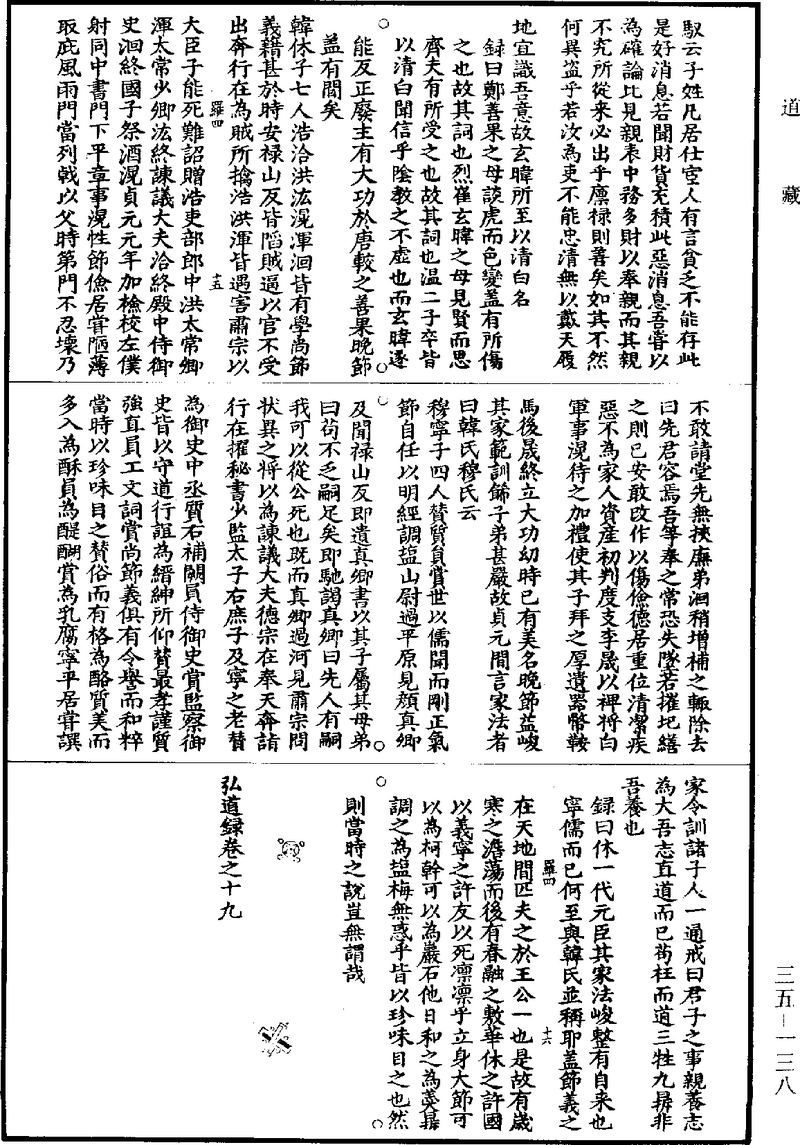 道藏
馭云子姓凡居仕宦人有言貧乏不能存此
是好消息若聞財貨充積此惡消息吾嘗以
為確論比見親表中務多財以奉親而其親
不究所從来必出乎廪禄則善矣如其不然
何異盗乎若汝為吏不能忠清無以戴天履
地宜識吾意故玄暐所至以清白名
録曰鄭善果之母談虎而色變蓋有所傷
之也故其詞也烈崔玄暐之母見賢而思
齊夫有所受之也故其詞也温二子卒皆
以清白聞信乎陰教之不虛也而玄暐遂
能反正廢主有大功於唐較之善果晚節
蓋有間矣
韓休子七人浩洽洪汯滉渾洄皆有學尚節
義籍甚於時安禄山反皆䧟賊逼以官不受
出奔行在為賊所擒浩洪渾皆遇害肅宗以
羅四
十五
大臣子能死難詔贈浩吏部郎中洪太常卿
渾太常少卿汯終諫議大夫洽終殿中侍御
史洄終國子祭酒滉貞元元年加檢校左僕
射同中書門下平章事滉性節儉居甞陋薄
取庇風雨門當列戟以父時第門不忍壊乃
不敢請堂先無挾廡弟洄稍增補之輙除去
曰先君容焉吾等奉之常恐失墜若摧圯繕
之則已安敢改作以傷儉德居重位清潔疾
惡不為家人資産初判度支李晟以裨将白
軍事滉待之加禮使其子拜之厚遺器幣鞍
馬後晟終立大功幼時已有美名晚節益峻
其家範訓飾子弟甚嚴故貞元間言家法者
曰韓氏穆氏云
穆寧子四人賛質員賞世以儒聞而剛正氣
節自任以明經調塩山尉過平原見顔真卿
及聞禄山反即遺真卿書以其子屬其母弟
曰苟不乏嗣足矣即馳謁真卿曰先人有嗣
我可以從公死也既而真卿過河見肅宗問
状異之将以為諫議大夫德宗在奉天奔詣
行在擢秘書少監太子右庶子及寧之老賛
為御史中丞質右補闕員侍御史賞監察御
史皆以守道行誼為縉紳所仰賛最孝謹質
強直員工文詞賞尚節義俱有令譽而和粹
當時以珍味目之賛俗而有格為酪質美而
多入為酥員為醍醐賞為乳腐寧平居甞譔
家令訓諸子人一通戒曰君子之事親養志
為大吾志直道而已苟枉而道三牲九鼎非
吾養也
録曰休一代元臣其家法峻整有自来也
寧儒而已何至與韓氏並稱耶蓋節義之
羅四
十六
在天地間匹夫之於王公一也是故有歲
寒之澹蕩而後有春融之敷華休之許國
以義寧之許友以死凛凛乎立身大節可
以為柯幹可以為巖石他日和之為羮鼎
調之為塩梅無惑乎皆以珍味目之也然
則當時之説豈無謂哉
弘道録卷之十九
三五－一三八